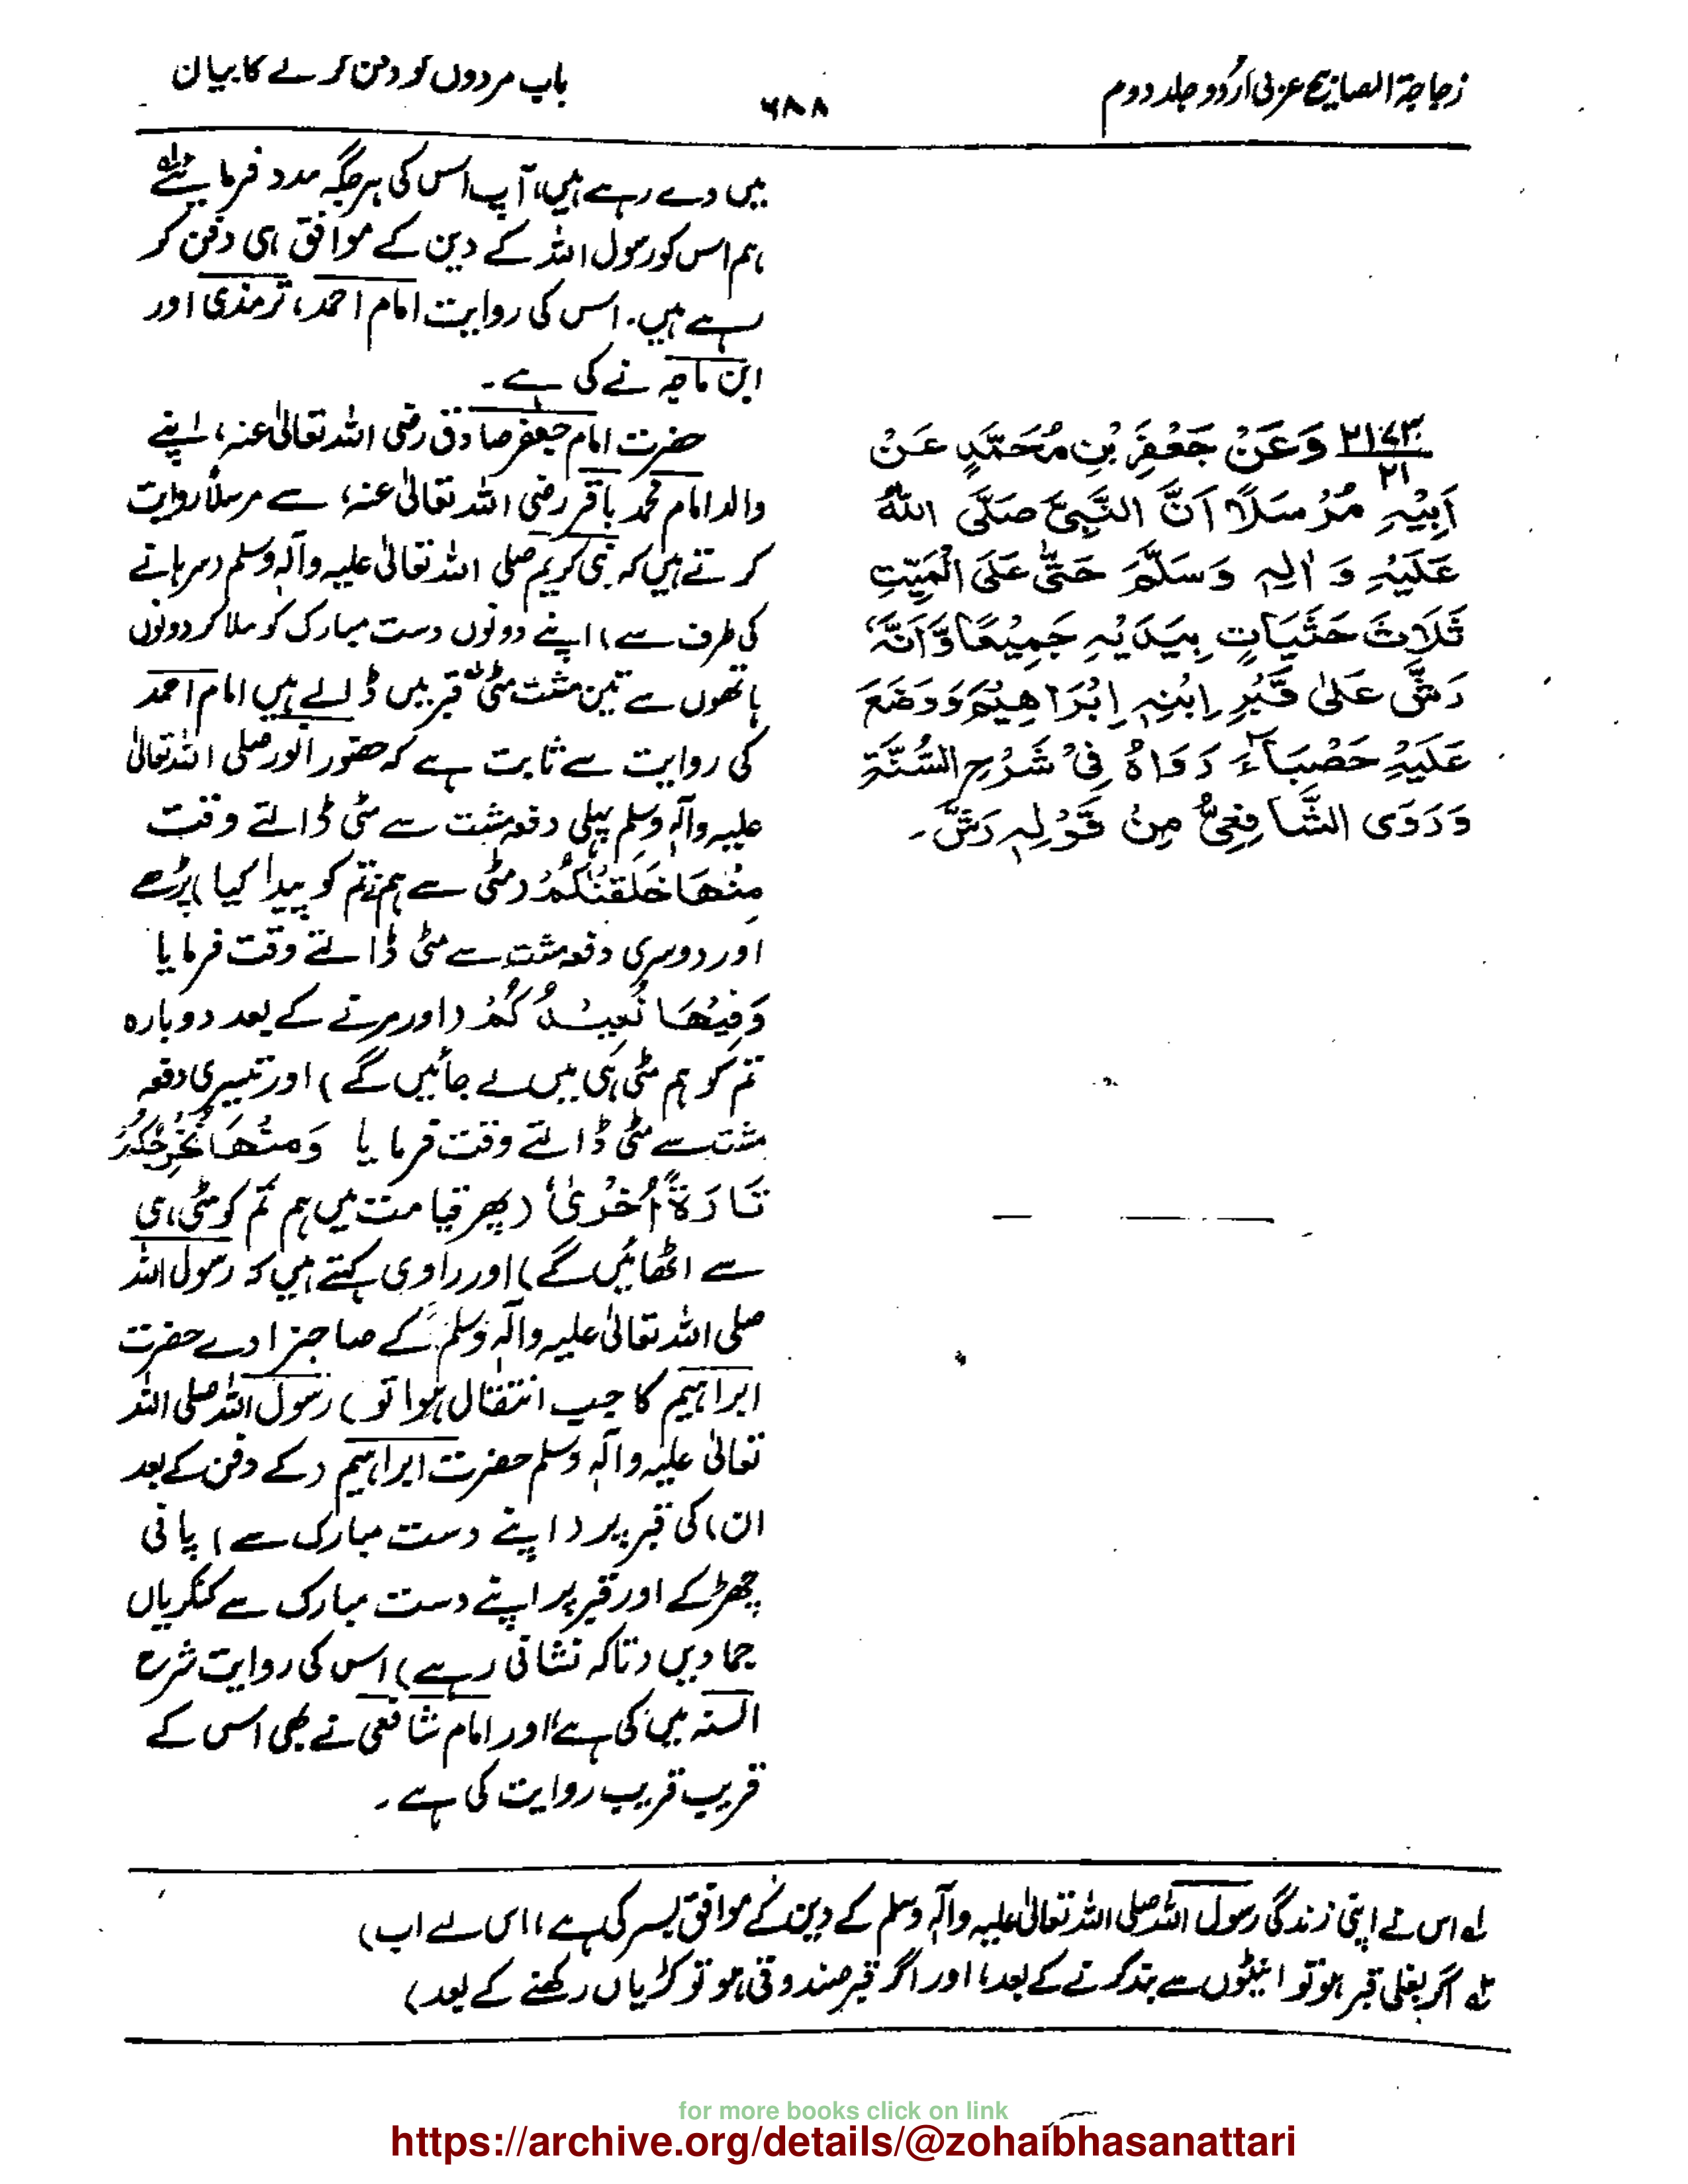 زجاجۃ المصابیح عربی اردو جلد دوم
۶۸۸
باب مردوں کو دفن کرنے کا بیان
۲۱۷۳
۲۱
وَعَنْ جَعْفَرِ بْنِ مُحَمَّدٍ عَنْ
اَبِيْهِ مُرْسَلًا اَنَّ النَّبِيَّ صَلَّى اللّٰهُ
عَلَيْهِ وَ اٰلِهٖ وَسَلَّمَ حَتّٰى عَلَى الْمَيِّتِ
ثَلَاثَ حَثَيَاتٍ بِيَدَيْهِ جَمِيْعًا وَّاَنَّهٗ
رَشَّ عَلٰى قَبْرِ اِبْنِهٖ اِبْرَاهِيْمَ وَوَضَعَ
عَلَيْهِ حَصْبَآءَ رَوَاهُ فِىْ شَرْحِ السُّنَّةِ
وَرَوَى الشَّافِعِىُّ مِنْ قَوْلِهٖ رَشَّ۔
میں دے رہے ہیں، آپ اس کی ہر جگہ مدد فرمایئے
ہم اس کو رسول اللہ کے دین کے موافق ہی دفن کر
رہے ہیں۔ اس کی روایت امام احمد، ترمذی اور
ابن ماجہ نے کی ہے۔
حضرت امام جعفر صادق رضی اللہ تعالیٰ عنہ، اپنے
والد امام محمد باقر رضی اللہ تعالیٰ عنہ، سے مرسلاً روایت
کرتے ہیں کہ نبی کریم صلی اللہ تعالیٰ علیہ وآلہ وسلم (سرہانے
کی طرف سے) اپنے دونوں دست مبارک کو ملا کر دونوں
ہاتھوں سے تین مشت مٹی قبر میں ڈالے ہیں امام احمد
کی روایت سے ثابت ہے کہ حضور انور صلی اللہ تعالیٰ
علیہ وآلہ وسلم پہلی دفعہ مشت سے مٹی ڈالتے وقت
مِنْهَا خَلَقْنٰكُمْ (مٹی سے ہم نے تم کو پیدا کیا) پڑھے
اور دوسری دفعہ مشت سے مٹی ڈالتے وقت فرمایا
وَفِيْهَا نُعِيْدُكُمْ (اور مرنے کے بعد دوبارہ
تم کو ہم مٹی ہی میں لے جائیں گے) اور تیسری دفعہ
مشت سے مٹی ڈالتے وقت فرمایا وَمِنْهَا نُخْرِجُكُمْ
تَارَةً اُخْرٰى (پھر قیامت میں ہم تم کو مٹی ہی
سے اٹھائیں گے) اور راوی کہتے ہیں کہ رسول اللہ
صلی اللہ تعالیٰ علیہ وآلہ وسلم کے صاحبزادے حضرت
ابراہیم کا جب انتقال ہوا تو) رسول اللہ صلی اللہ
تعالیٰ علیہ وآلہ وسلم حضرت ابراہیم (کے دفن کے بعد
ان) کی قبر پر (اپنے دست مبارک سے) پانی
چھڑکے اور قبر پر اپنے دست مبارک سے کنکریاں
جما دیں (تاکہ نشانی رہے) اس کی روایت شرح
السنہ میں کی ہے اور امام شافعی نے بھی اس کے
قریب قریب روایت کی ہے۔
لہ اس نے اپنی زندگی رسول اللہ صلی اللہ تعالیٰ علیہ وآلہ وسلم کے دین کے موافق بسر کی ہے، اس لے اب)
ٹہ اگر بغلی قبر ہو تو اینٹوں سے بند کرنے کے بعد، اور اگر قبر صندوقی ہو تو کڑیاں رکھنے کے بعد)
for more books click on link
https://archive.org/details/@zohaibhasanattari